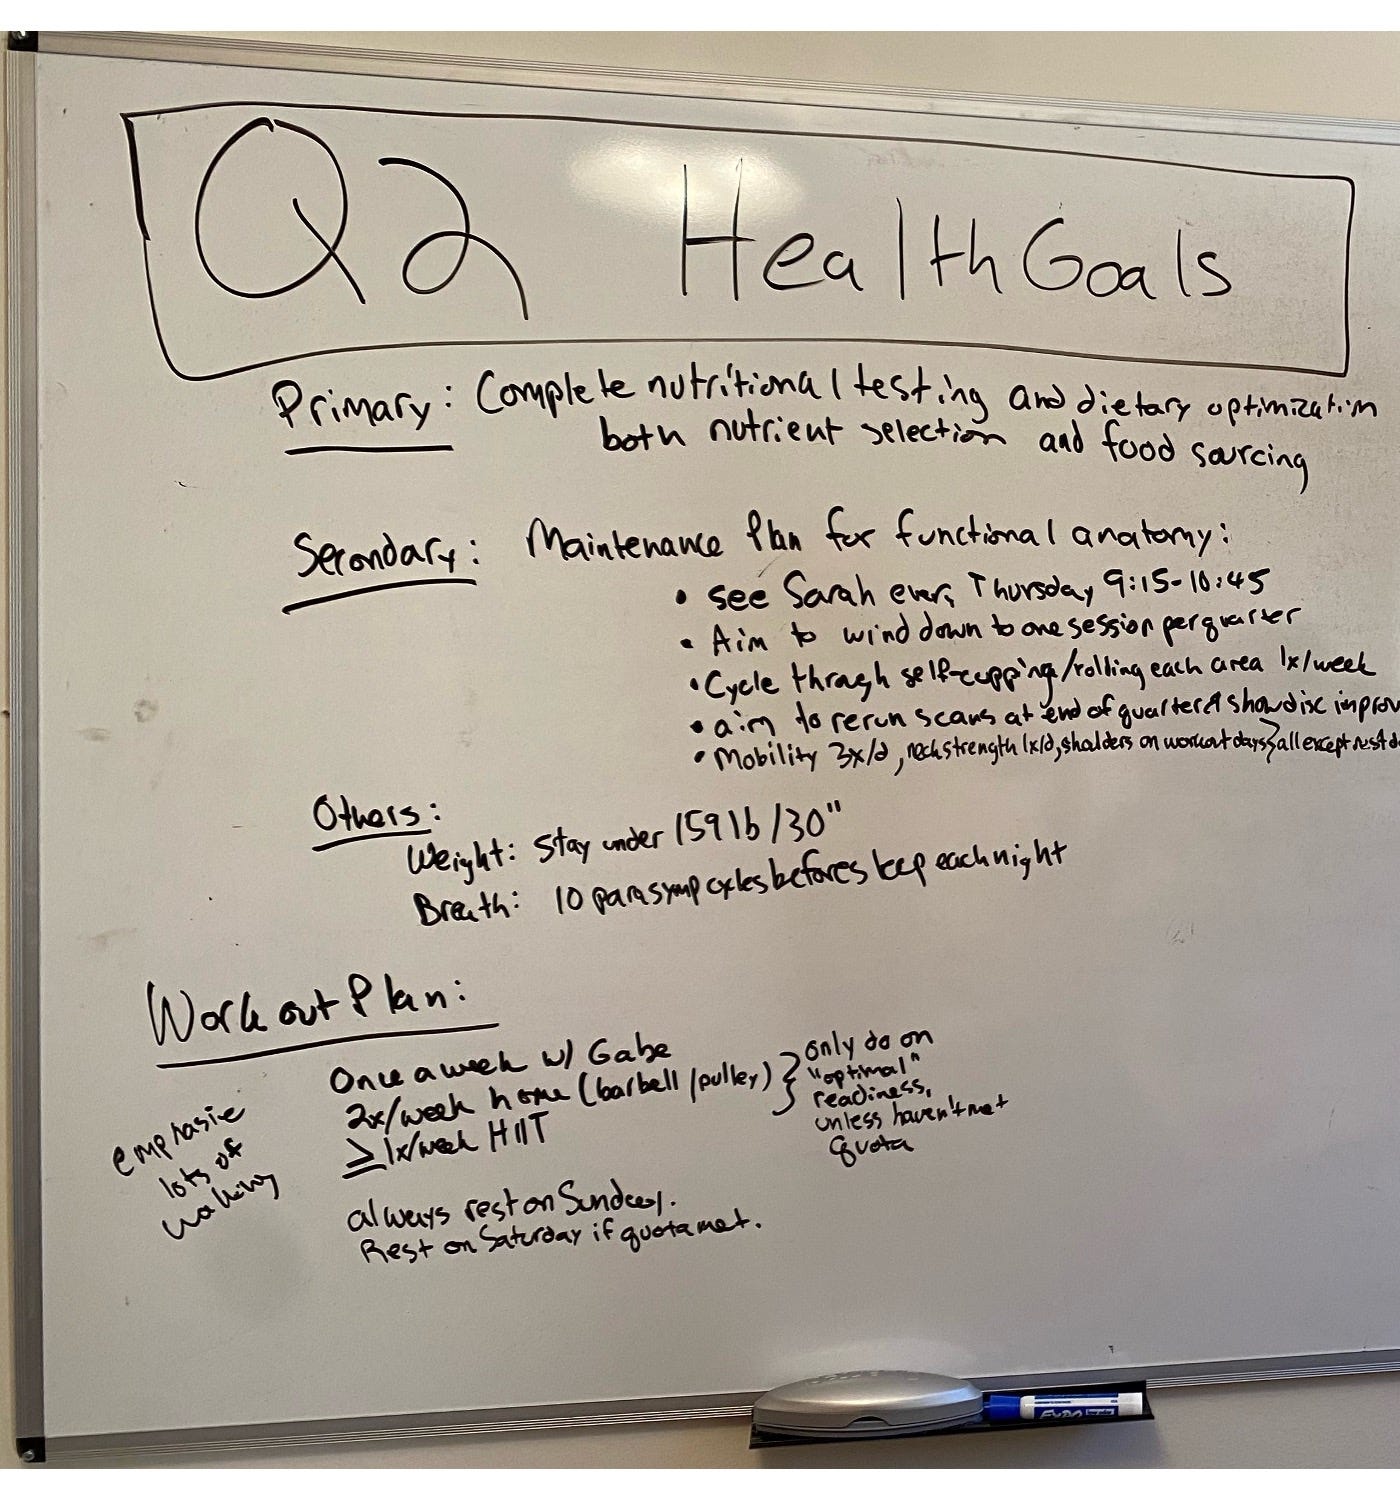 Q2 Health Goals
Primary: Complete nutritional testing and dietary optimization
both nutrient selection and food sourcing
Secondary: Maintenance Plan for functional anatomy:
• see Sarah every Thursday 9:15-10:45
• Aim to wind down to one session per quarter
• Cycle through self-cupping/rolling each area 1x/week
• aim to rerun scans at end of quarter & show disc improv
• Mobility 3x/d, neck strength 1x/d, shoulders on workout days } all except rest d
Others:
Weight: Stay under 159 lb/30"
Breath: 10 parasymp cycles before sleep each night
Workout Plan:
Once a week w/ Gabe
2x/week home (barbell/pulley)
≥1x/week HIIT
} only do on
"optimal"
readiness,
unless haven't met
quota
emphasize
lots of
walking
always rest on Sunday.
Rest on Saturday if quota met.
EXPO